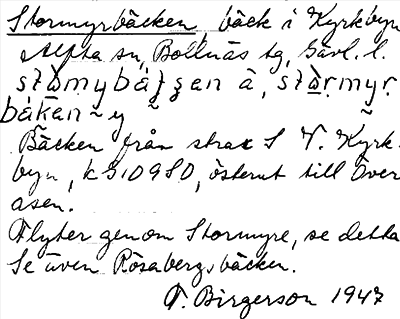 Stormyrbäcken, bäck i Kyrkbyn
Alfta sn, Bollnäs tg, Gävl. l.
Bäcken från strax S V. Kyrk-
byn, kG10980, österut till Över
åsen.
Flyter genom Stormyre, se detta
Se även Rösabergsbäcken.
T. Birgerson 1947